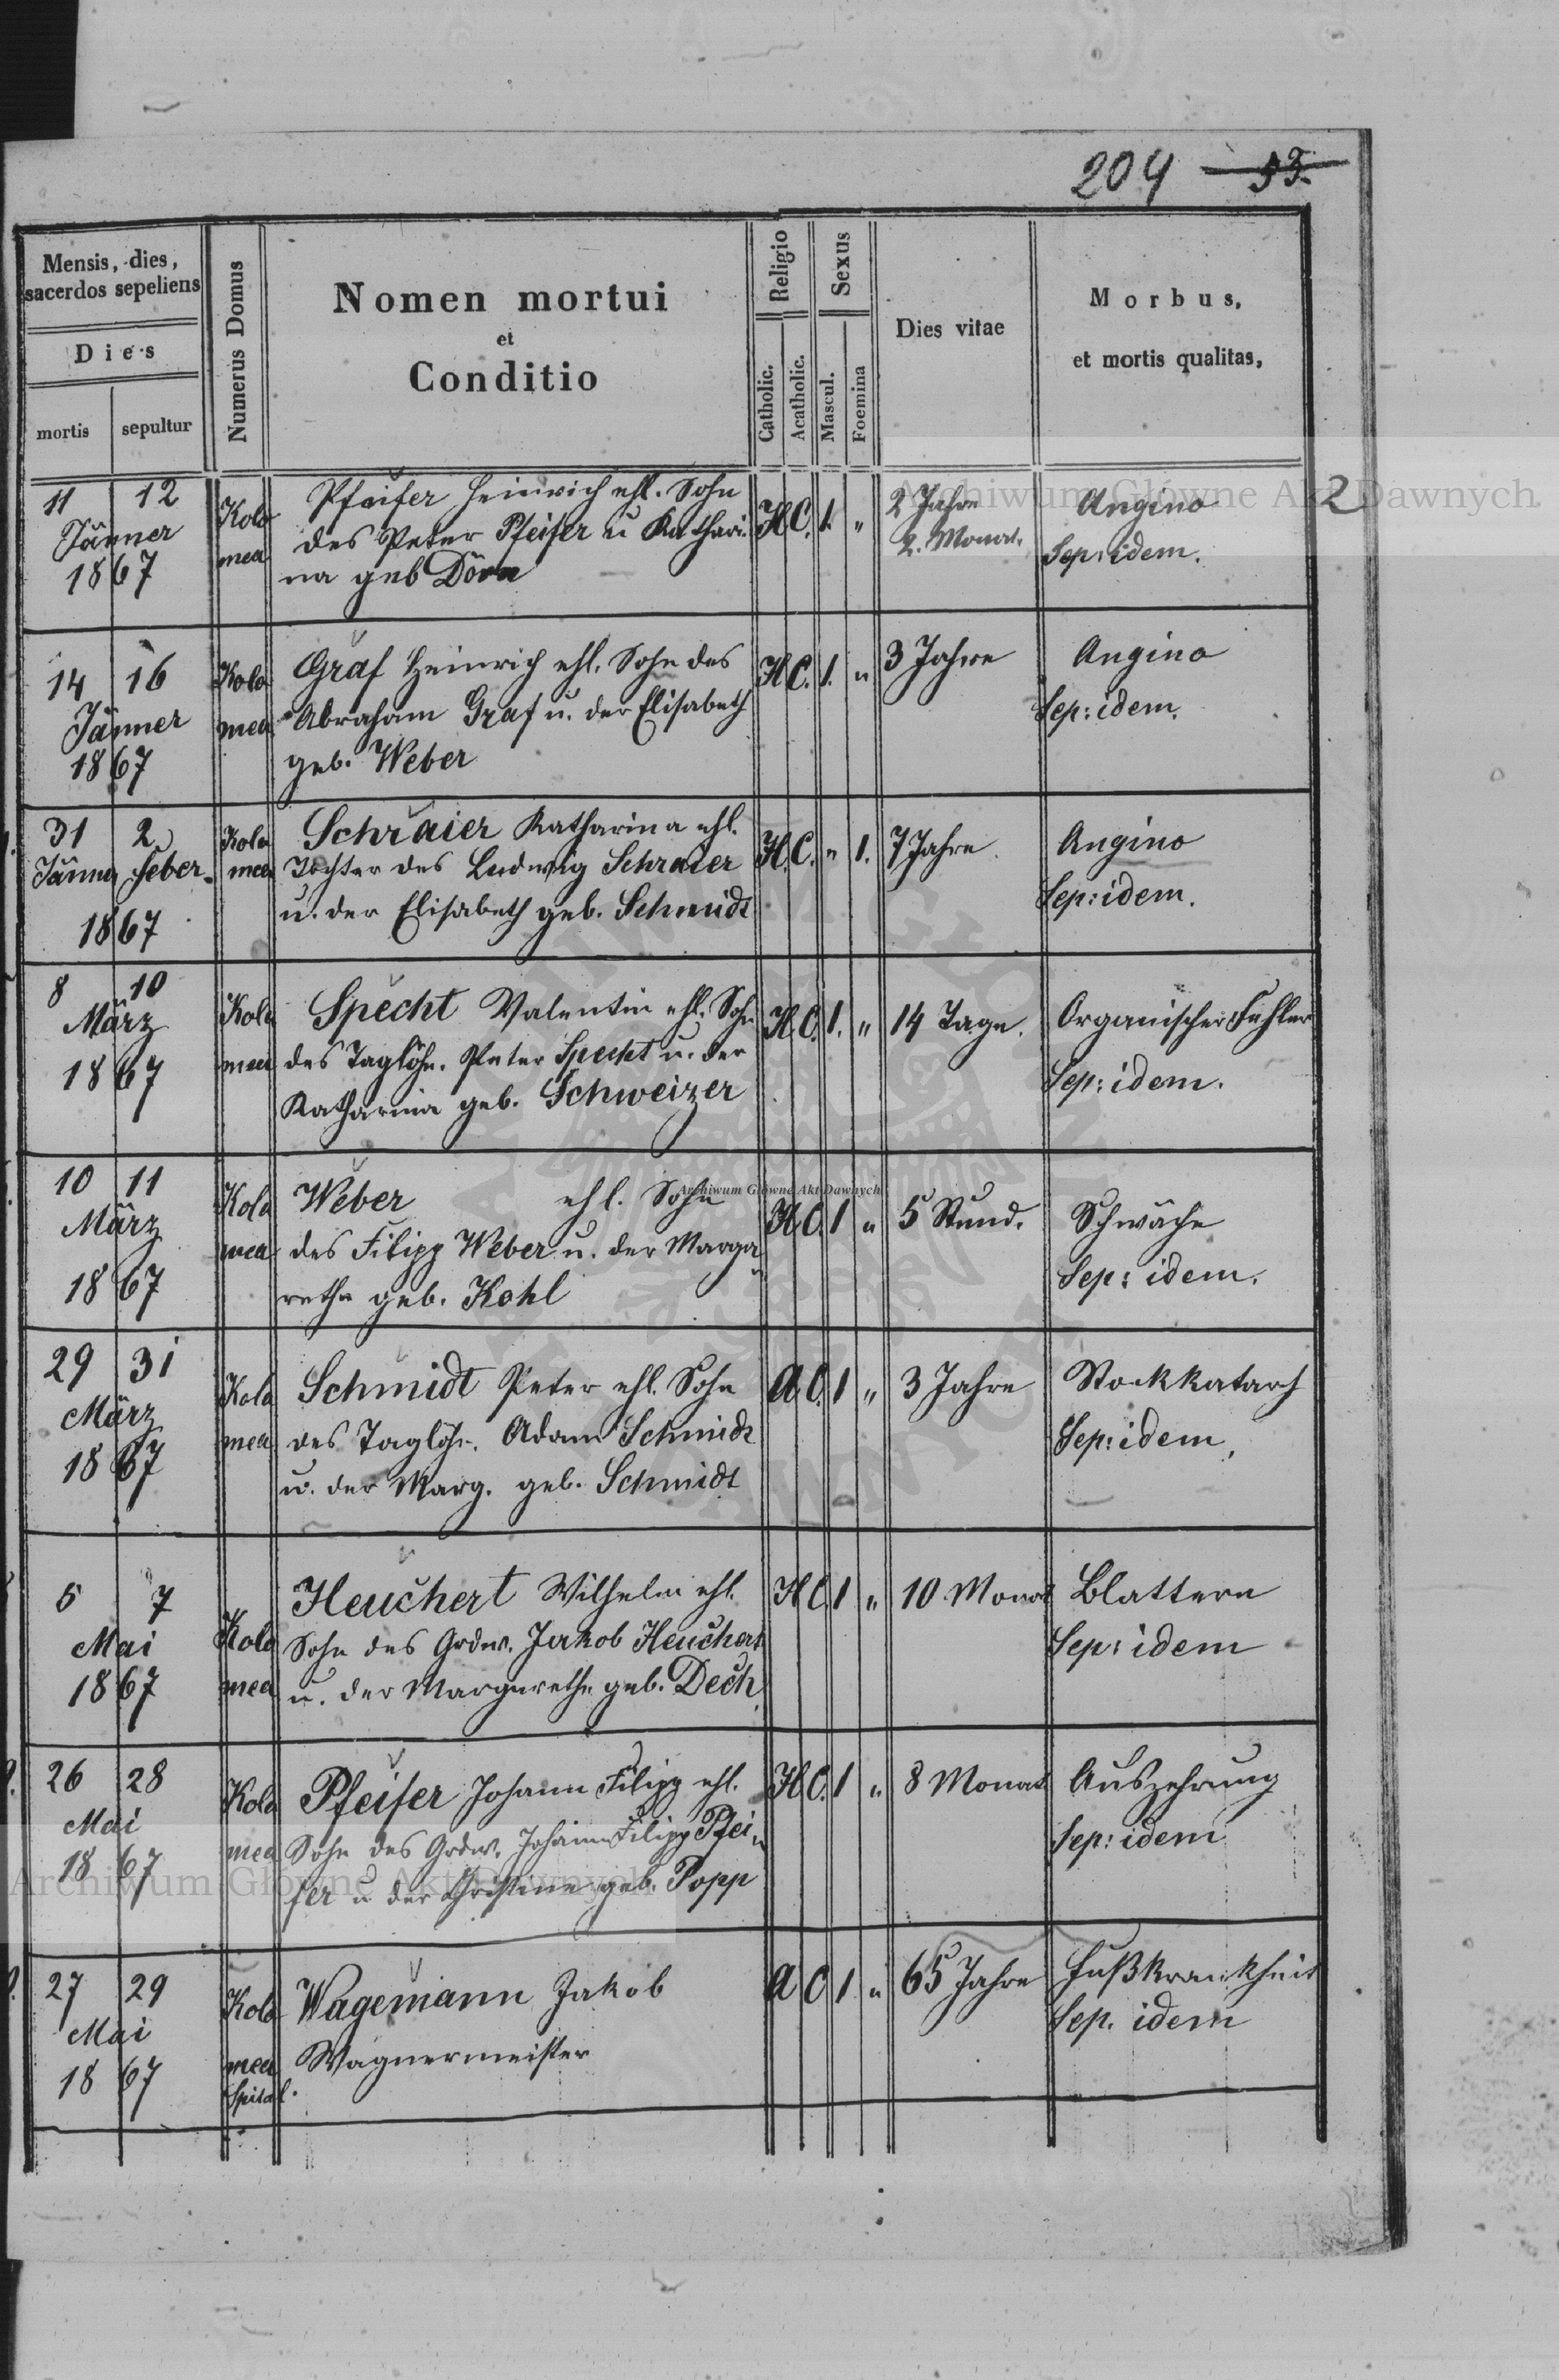 204 53.
Mensis, dies,
sacerdos sepeliens
Dies
mortis
sepultur
Numerus Domus
Nomen mortui
et
Conditio
Religio
Catholic.
Acatholic.
Sexus
Mascul.
Foemina
Dies vitae
Morbus,
et mortis qualitas,
11 12
Jänner
1867
Kolo
mea
Pfeifer Heinrich ehl. Sohn
des Peter Pfeifer u Kathari-
na geb Dörn
H. C. 1. "
2 Jahre
2. Monat.
Angino
Sep: idem.
2
14 16
Jänner
1867
Kolo
mea
Graf Heinrich ehl. Sohn des
Abraham Graf u. der Elisabeth
geb. Weber
H. C. 1. "
3 Jahre
Angino
Sep: idem.
31 2
Jänner Feber.
1867
Kolo
mea
Schraier Katharina ehl.
Tochter des Ludwig Schraier
u. der Elisabeth geb. Schmidt
H. C. " 1.
7 Jahre
Angino
Sep: idem.
8 10
März
1867
Kolo
mea
Specht Valentin ehl. Sohn
des Taglöhn. Peter Specht u. der
Katharina geb. Schweizer
H. C. 1. "
14 Tage.
Organischer Fehler
Sep: idem.
10 11
März
1867
Kolo
mea
Weber ehl. Sohn
des Filipp Weber u. der Marga-
retha geb. Kohl
H. C. 1 "
5 Stund.
Schwäche
Sep: idem.
29 31
März
1867
Kolo
mea
Schmidt Peter ehl. Sohn
des Taglöhn. Adam Schmidt
u. der Marg. geb. Schmidt
A. C. 1 "
3 Jahre
Stockkatarh
Sep: idem,
5 7
Mai
1867
Kolo
mea
Heuchert Wilhelm ehl.
Sohn des Grdw. Jakob Heuchert
u. der Margarethe geb. Dech
H C 1 "
10 Monat
Blattern
Sep: idem
26 28
Mai
1867
Kolo
mea
Pfeifer Johann Filipp ehl.
Sohn des Grdw. Johann Filipp Pfei-
fer u der Christine geb. Popp
H. C. 1 "
8 Monat
Auszehrung
Sep: idem
27 29
Mai
1867
Kolo
mea
Spital.
Wagemann Jakob
Wagnermeister
A C 1 "
65 Jahre
Fußkrankheit
Sep. idem
Archiwum Główne Akt Dawnych
Archiwum Główne Akt Dawnych
Archiwum Główne Akt Dawnych